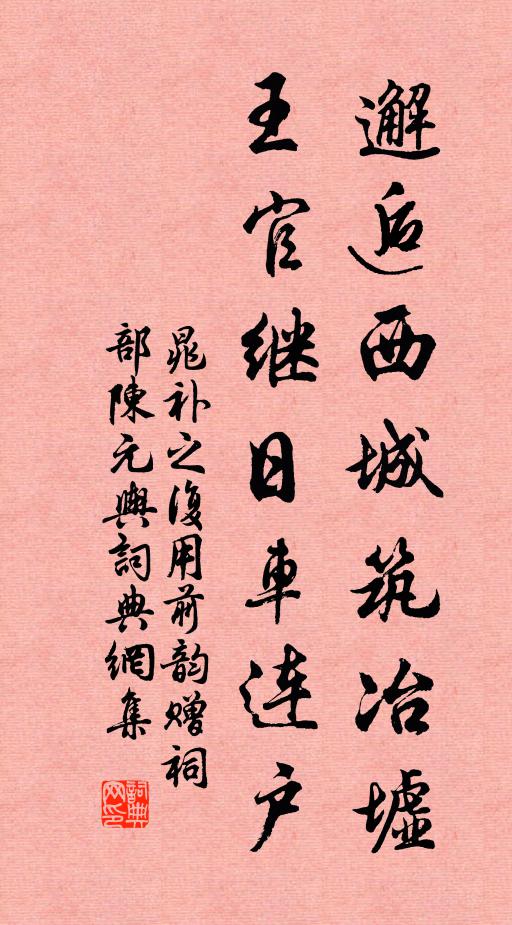 邂逅西城筑冶墟
王官继日車连户
晁补之復用前韵赠祠
部陳元輿詞典網集
詞典
网印